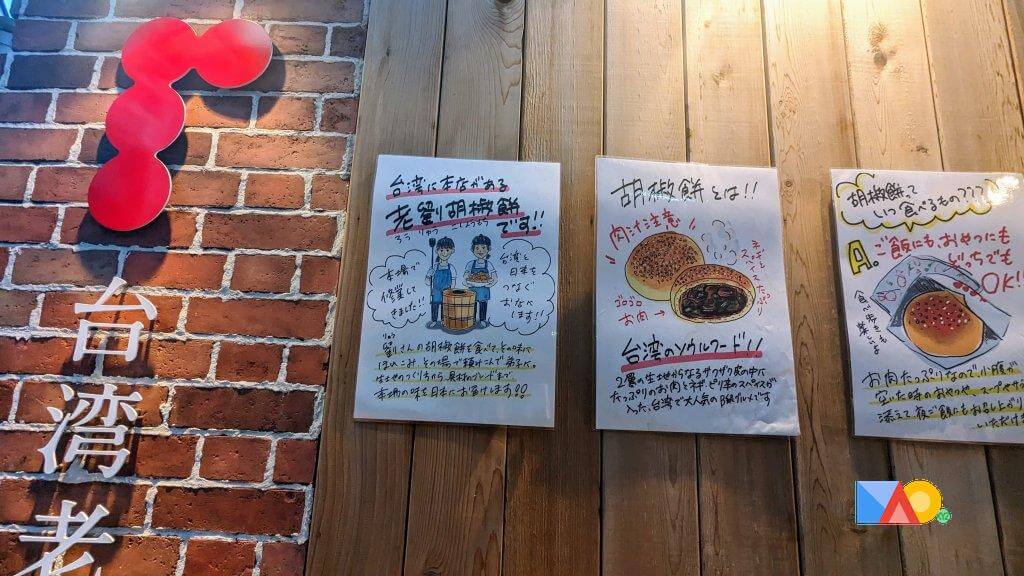 台湾老
台湾に本店がある
老劉胡椒餅
ろう りゅう こしょうもち
です!!
本場で
修業して
きました!!
台湾と
日本を
つなぐ
おなべ
します!!
りゅう
劉さんの胡椒餅を食べて、その味に
ほれこみ、その場で頼みこんで弟子へ。
生地のつくり方から具材のブレンドまで
本場の味を日本にお届けします!!
胡椒餅とは!!
肉汁注意
ネギと
スパイスたっぷり
ゴロゴロ
お肉→
台湾のソウルフード!!
2層の生地からなるサクサク皮の中に
たっぷりのお肉とネギ、ピリ辛のスパイスが
入った、台湾で大人気のB級グルメです
胡椒餅って
いつ食べるもの??
A.ご飯にも、おやつにも
どっちでも
OK!!
食べ歩きも
楽しいよ
お肉たっぷりなので小腹が
空いた時のおやつや、スープやサ
添えて夜ご飯にもお召し上がり
いただけ
MAO